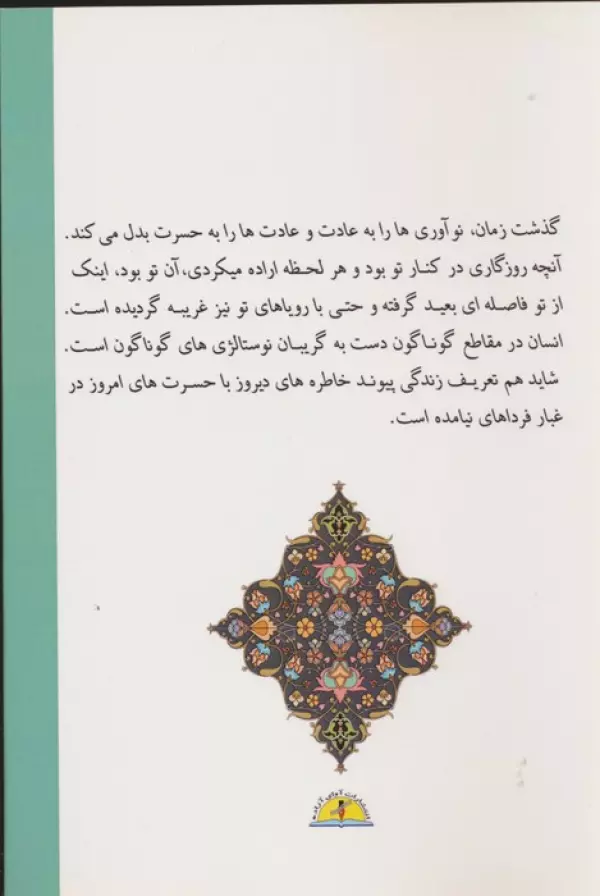 گذشت زمان، نوآوری ها را به عادت و عادت ها را به حسرت بدل می کند.
آنچه روزگاری در کنار تو بود و هر لحظه اراده میکردی، آن تو بود، اینک
از تو فاصله ای بعید گرفته و حتی با رویاهای تو نیز غریبه گردیده است.
انسان در مقاطع گوناگون دست به گریبان نوستالژی های گوناگون است.
شاید هم تعریف زندگی پیوند خاطره های دیروز با حسرت های امروز در
غبار فرداهای نیامده است.
انتشارات آوای آزاده